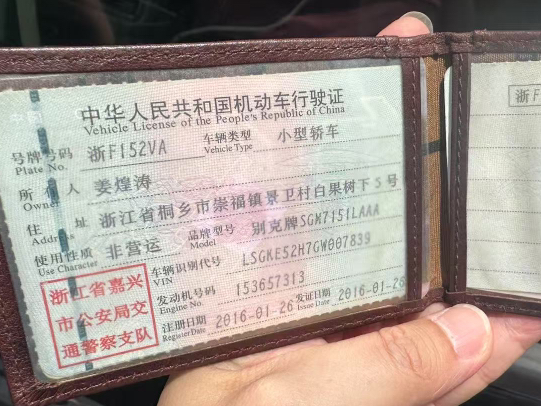 中华人民共和国机动车行驶证
Vehicle License of the People's Republic of China
号牌号码 浙F152VA 车辆类型 小型轿车
Plate No. Vehicle Type
所有人 姜煌涛
Owner
住址 浙江省桐乡市崇福镇景卫村白果树下5号
Address
使用性质 非营运 品牌型号 别克牌SGM7151LAAA
Use Character Model
浙江省嘉兴
市公安局交
通警察支队
车辆识别代号 LSGKE52H7GW007839
VIN
发动机号码 153657313
Engine No.
注册日期 2016-01-26 发证日期 2016-01-26
Register Date Issue Date
浙F